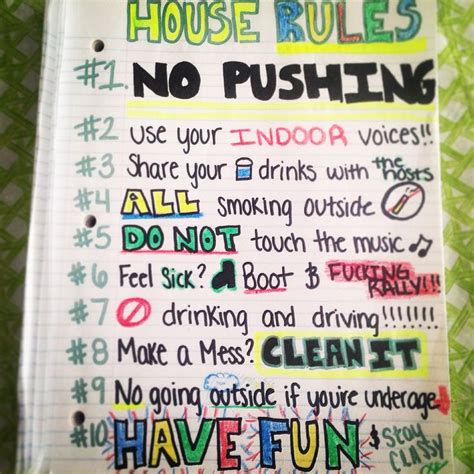 HOUSE RULES
#1. NO PUSHING
#2 Use your INDOOR voices!!
#3 Share your drinks with the hosts
#4 ALL smoking outside
#5 DO NOT touch the music
#6 Feel Sick? Boot & FUCKING RALLY!!!
#7 drinking and driving!!!!!!!
#8 Make a Mess? CLEAN IT
#9 No going outside if you're underage
#10 HAVE FUN & STAY CLASSY